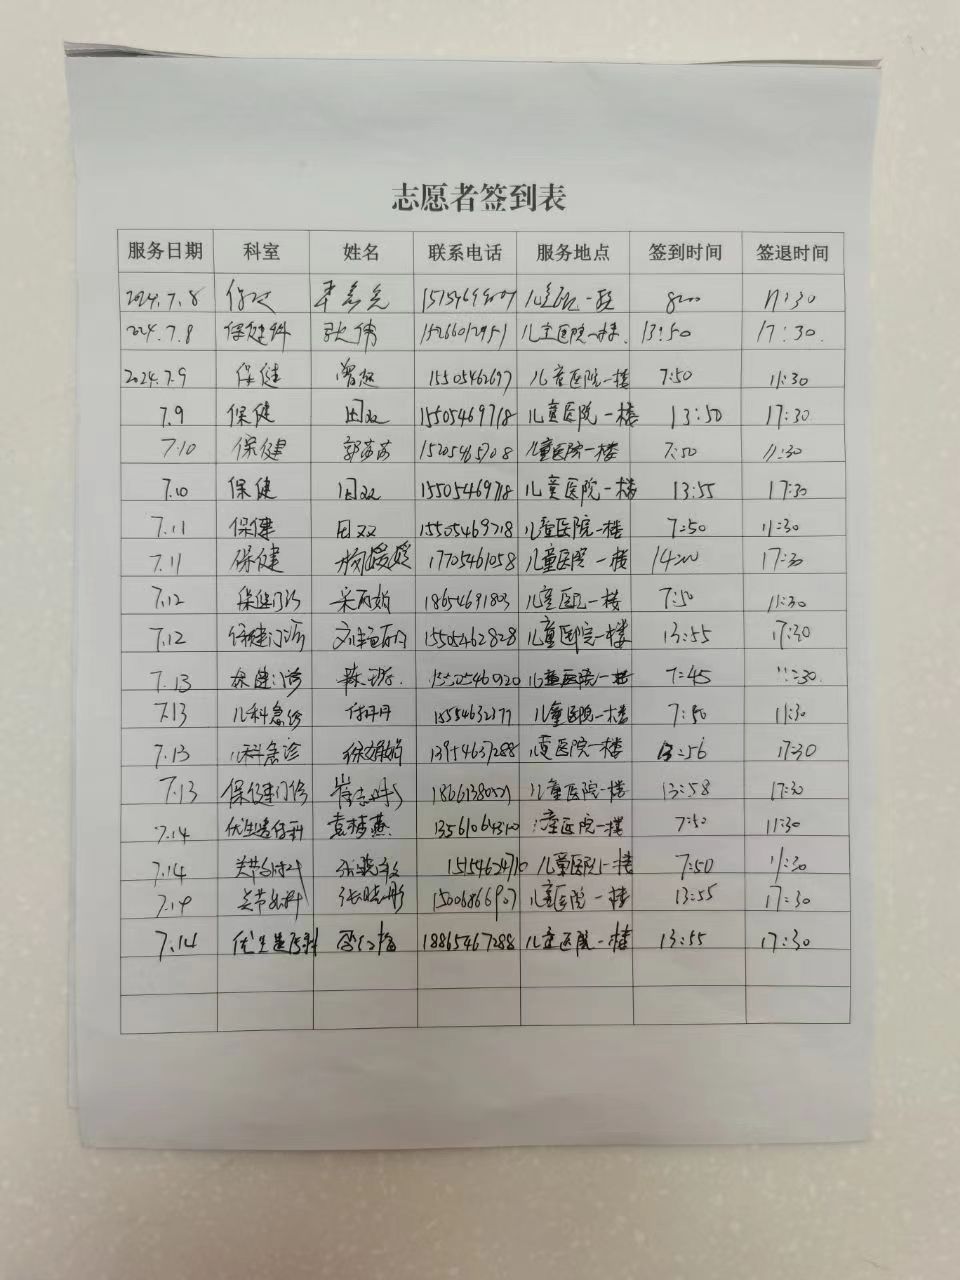 志愿者签到表
服务日期 科室 姓名 联系电话 服务地点 签到时间 签退时间
2024.7.8 一 8:00 11:30
2024.7.8 保健科 张伟 儿童医院一楼. 13:50 17:30.
2024.7.9 保健 15505462697 儿童医院一楼 7:50 11:30
7.9 保健 田双 15505469718 儿童医院一楼 13:50 17:30
7.10 保健 郭莎莎 儿童医院一楼 7:50 11:30
7.10 保健 田双 15505469718 儿童医院一楼 13:55 17:30
7.11 保健 田双 15505469718 儿童医院一楼 7:50 11:30
7.11 保健 杨媛媛 17705461058 儿童医院一楼 14:00 17:30
7.12 保健门诊 18654691803 儿童医院一楼 7:50 11:30
7.12 保健门诊 15505462828 儿童医院一楼 13:55 17:30
7.13 保健门诊 儿童医院一楼 7:45 11:30
7.13 儿科急诊 付丹丹 儿童医院一楼 7:50 11:30
7.13 儿科急诊 13954637288 儿童医院一楼 13:56 17:30
7.13 保健门诊 儿童医院一楼 13:58 17:30
7.14 优生遗传科 袁梦燕 儿童医院一楼 7:50 11:30
7.14 关节外科 15154624710 儿童医院一楼 7:50 11:30
7.14 关节外科 张晓彤 15006866907 儿童医院一楼 13:55 17:30
7.14 优生遗传科 18865467288 儿童医院一楼 13:55 17:30